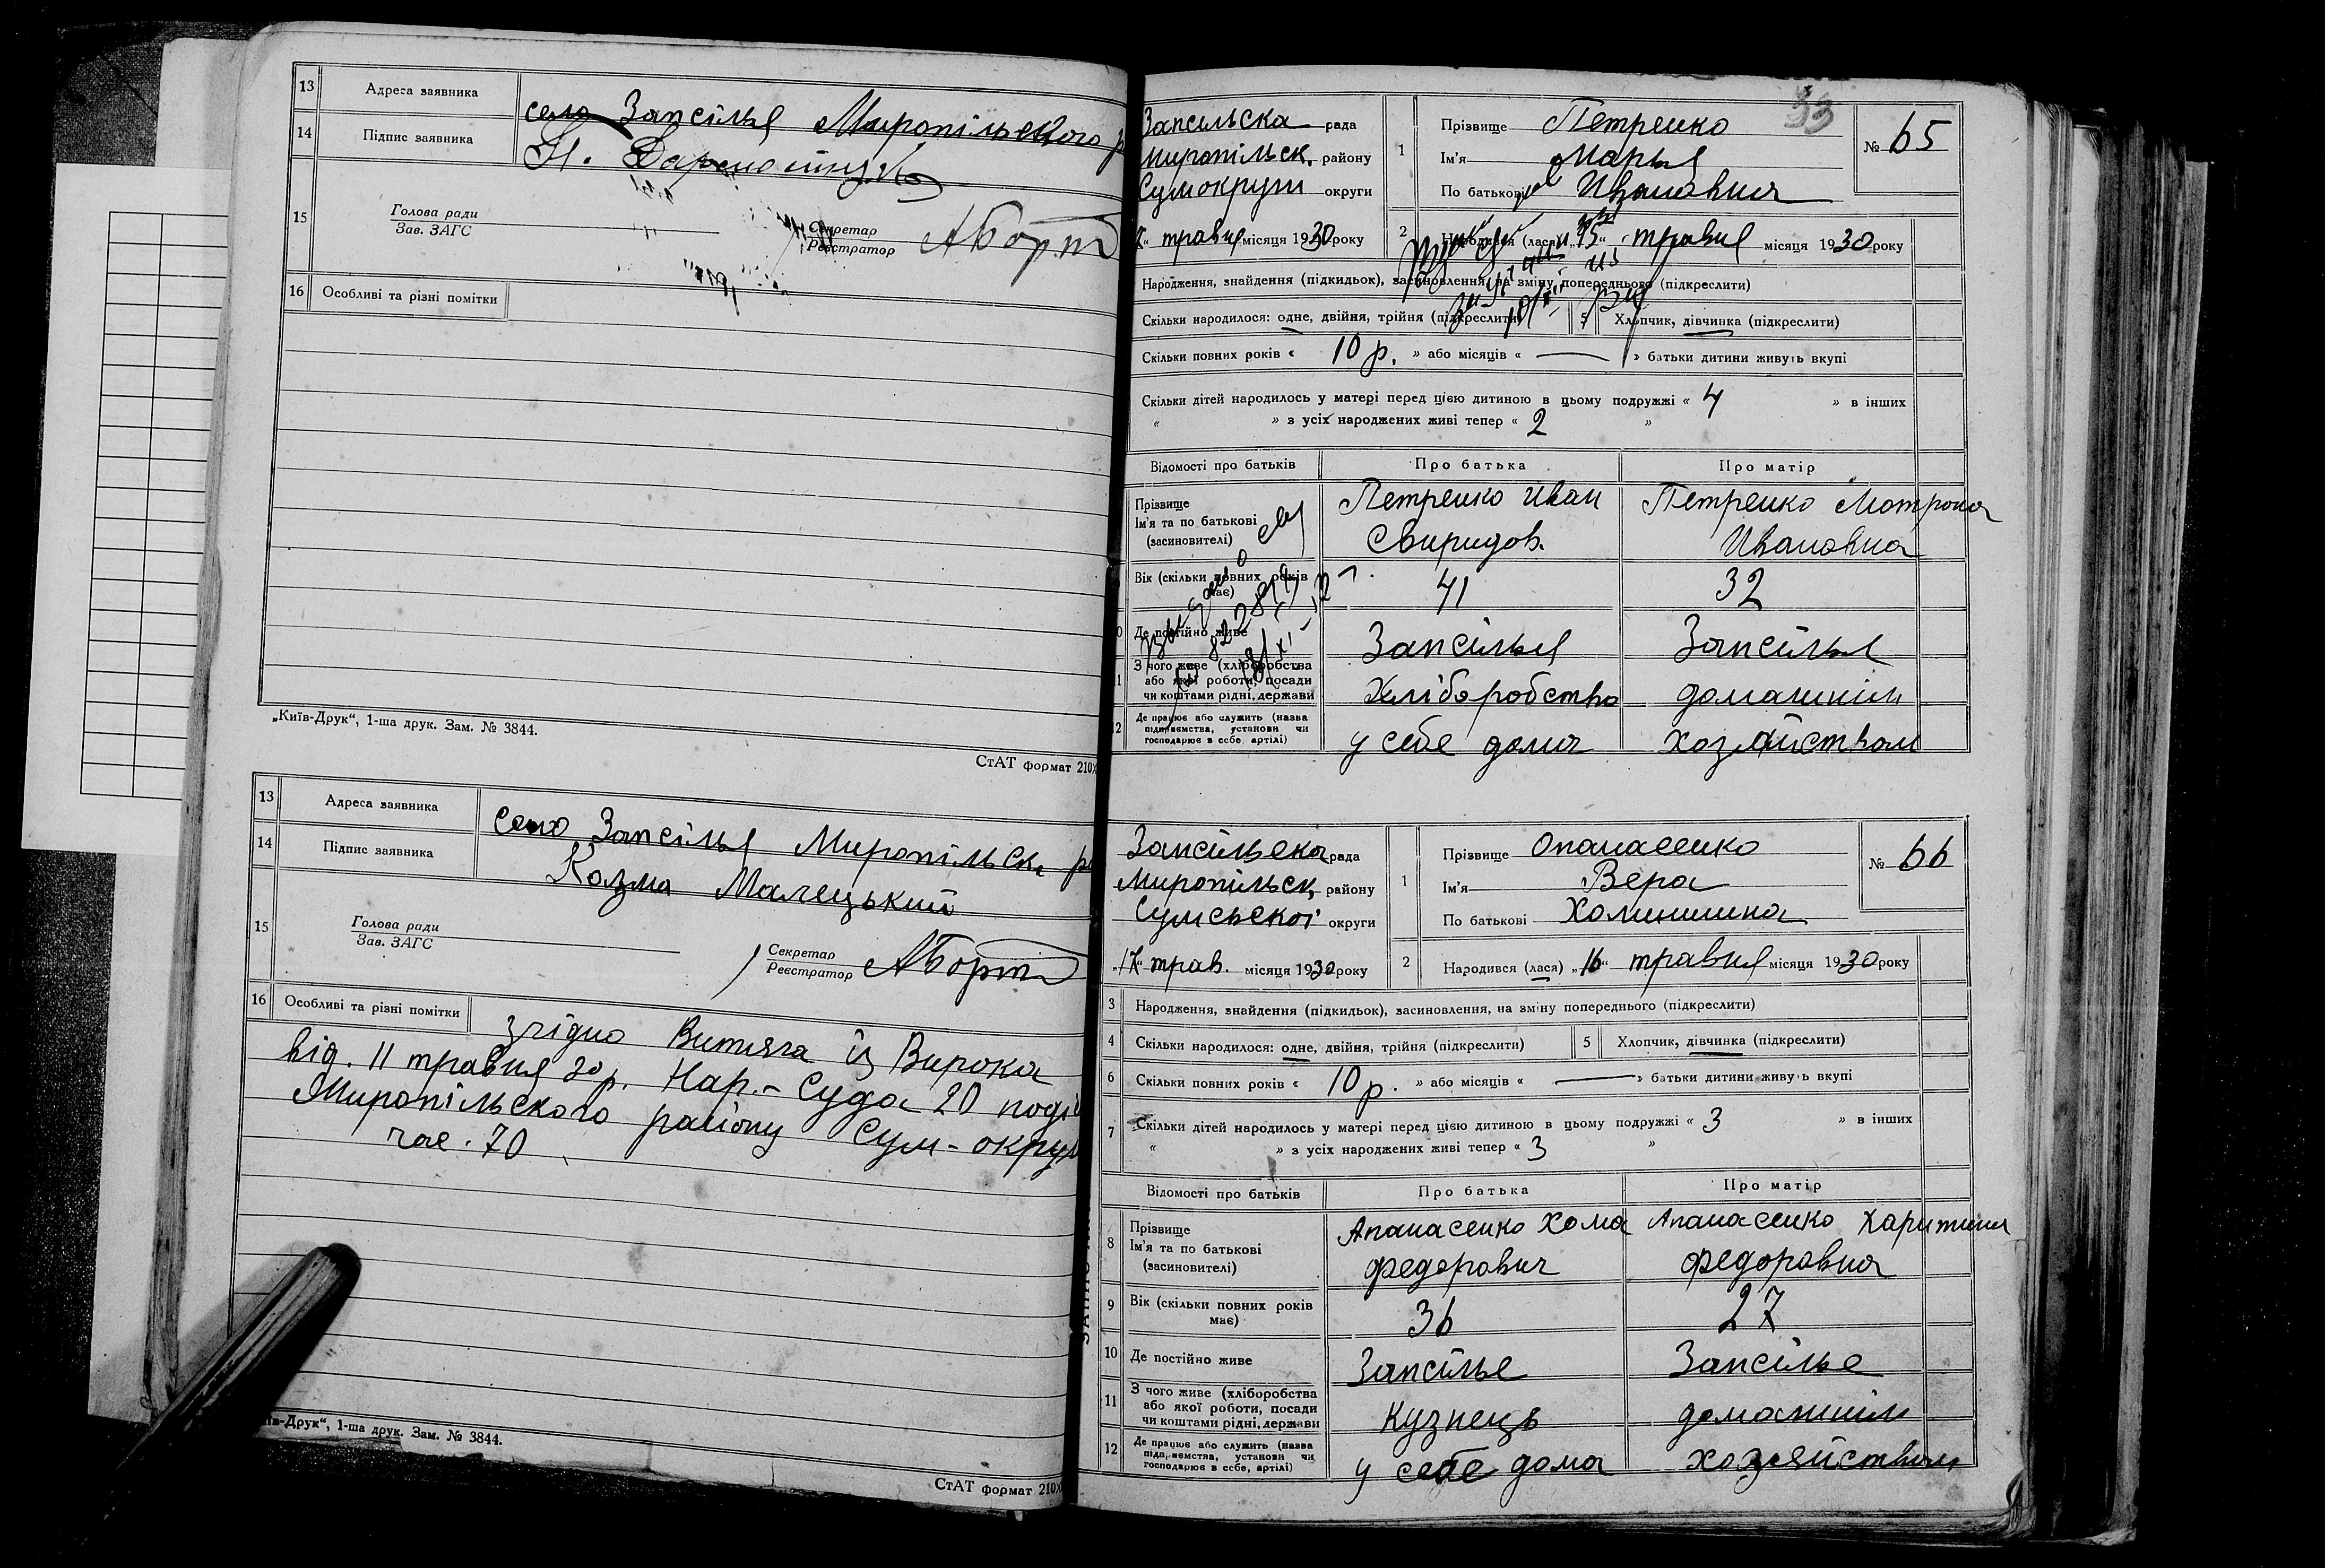 13 Адреса заявника село Запсілья Миропільского р
14 Підпис заявника
15 Голова ради
Зав. ЗАГС
Секретар
Реєстратор АБорт
16 Особливі та різні помітки
„Київ-Друк“, 1-ша друк. Зам. № 3844.
СтАТ формат 210X
13 Адреса заявника село Запсілья Миропільск.
14 Підпис заявника Козма Малецький
15 Голова ради
Зав. ЗАГС
Секретар
Реєстратор АБорт
16 Особливі та різні помітки згідно Витяга із Вирока
від. 11 травня 30 р. Нар.- Суда 20
Миропільского району Сум-окру
70
їв-Друк“, 1-ша друк. Зам. № 3844.
СтАТ формат 210X
33
Запсільска рада
Миропільск. району
Сумокруги округи
травня місяця 1930 року
1 Прізвище Петренко
Ім'я Марья
По батькові Ивановня
№ 65
2 Народився (лася) „15“ травня місяця 1930 року
Народження, знайдення (підкидьок), засиновлення, на зміну попереднього (підкреслити)
Скільки народилося: одне, двійня, трійня (підкреслити) 5 Хлопчик, дівчинка (підкреслити)
Скільки повних років « 10 р. » або місяців « — » батьки дитини живуть вкупі
Скільки дітей народилось у матері перед цією дитиною в цьому подружжі « 4 » в інших
« » з усіх народжених живі тепер « 2 »
Відомості про батьків Про батька Про матір
Прізвище
Ім'я та по батькові
(засиновителі)
Петренко Иван
Свиридов.
Петренко Мотрона
Ивановна
Вік (скільки повних років
має) 41 32
Де постійно живе Запсілья Запсілья
З чого живе (хліборобства
або якої роботи, посади
чи коштами рідні, держави Хліборобство домашнім
Де працює або служить (назва
підприємства, установи чи
господарює в себе, артілі) у себе дома хозяйством
Запсільска рада
Миропільск, району
Сумської округи
„17“ трав. місяця 1930 року
1 Прізвище Опанасенко
Ім'я Вера
По батькові Хоминишна
№ 66
2 Народився (лася) „16“ травня місяця 1930 року
3 Народження, знайдення (підкидьок), засиновлення, на зміну попереднього (підкреслити)
4 Скільки народилося: одне, двійня, трійня (підкреслити) 5 Хлопчик, дівчинка (підкреслити)
6 Скільки повних років « 10 р. » або місяців « — » батьки дитини живуть вкупі
7 Скільки дітей народилось у матері перед цією дитиною в цьому подружжі « 3 » в інших
« » з усіх народжених живі тепер « 3 »
Відомості про батьків Про батька Про матір
8 Прізвище
Ім'я та по батькові
(засиновителі)
Апанасенко Хома
Федорович
Апанасенко Харитиня
Федоровня
9 Вік (скільки повних років
має) 36 27
10 Де постійно живе Запсілье Запсілье
11 З чого живе (хліборобства
або якої роботи, посади
чи коштами рідні, держави Кузнець домашнім
12 Де працює або служить (назва
підприємства, установи чи
господарює в себе, артілі) у себе дома хозяйством